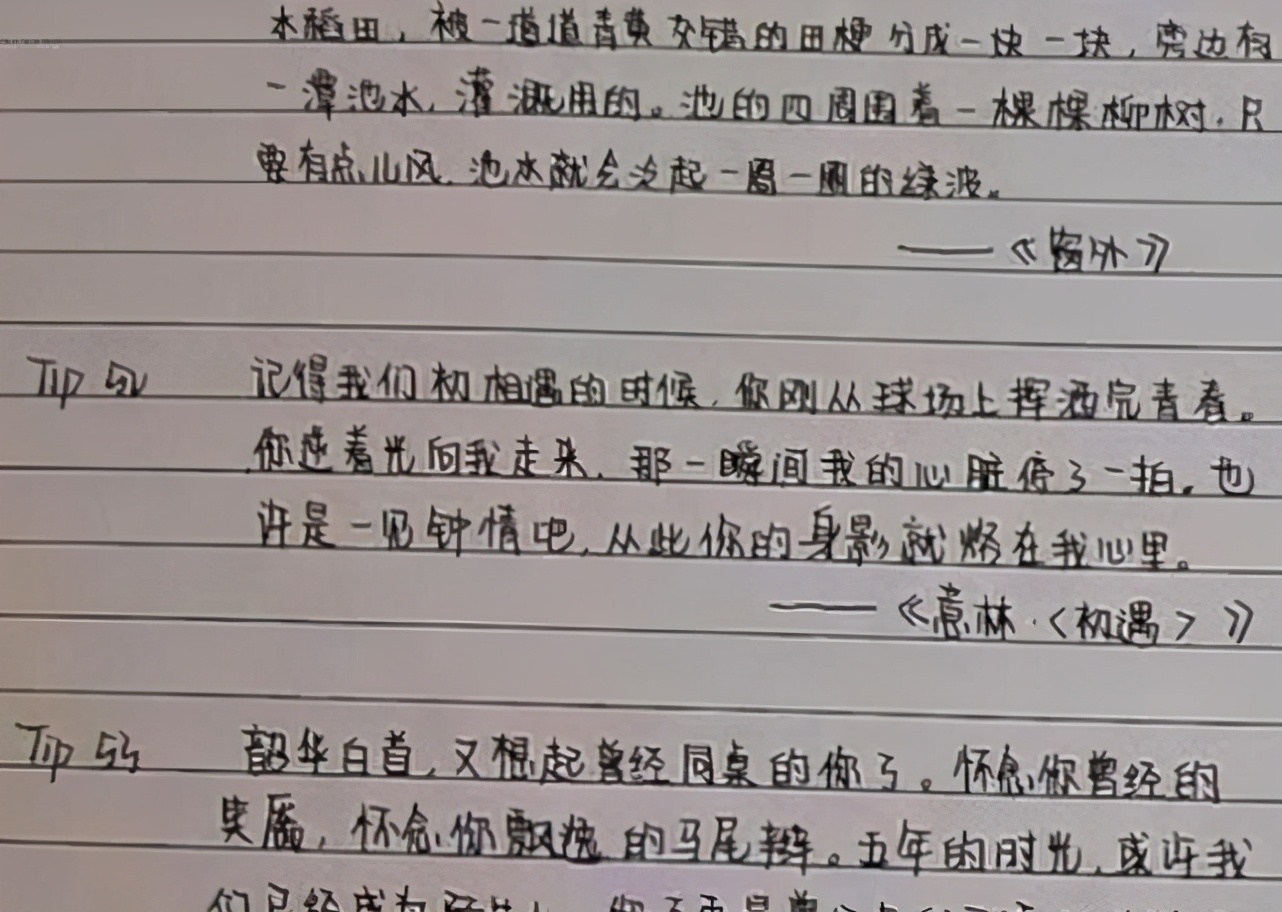 木稻田，被一道道青黄交错的田梗分成一块一块，旁边有
一潭池水，灌溉用的。池的四周围着一棵棵柳树，只
要有点儿风，池水就会泛起一圈一圈的绿波。
——《窗外》
Tip 52 记得我们初相遇的时候，你刚从球场上挥洒完青春。
你逆着光向我走来，那一瞬间我的心脏停了一拍。也
许是一见钟情吧，从此你的身影就烙在我心里。
——《意林·〈初遇〉》
Tip 53 韶华白首，又想起曾经同桌的你了。怀念你曾经的
笑靥，怀念你飘逸的马尾辫。五年的时光，或许我
们已经成为陌生人，你不再是曾